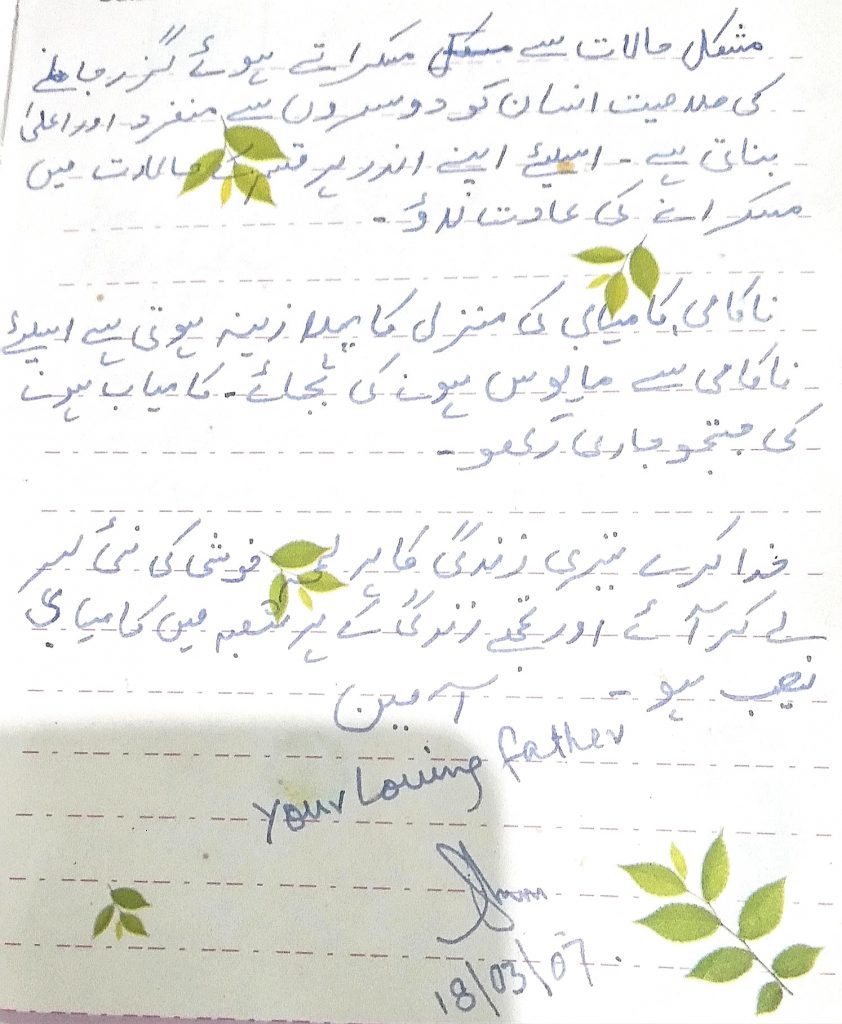 مشکل حالات سے مسکراتے ہوئے گزر جانے
کی صلاحیت انسان کو دوسروں سے منفرد اور اعلیٰ
بناتی ہے۔ اسلیئے اپنے اندر ہر قسم کے حالات میں
مسکرانے کی عادت ڈالو۔
ناکامی کامیابی کی منزل کا پہلا زینہ ہوتی ہے اسلیئے
ناکامی سے مایوس ہونے کی بجائے۔ کامیاب ہونے
کی جستجو جاری رکھو۔
خدا کرے تیری زندگی کا ہر لمحہ خوشی کی نئی لہر
لے کر آئے اور تجھے زندگی کے ہر شعبہ میں کامیابی
نصیب ہو۔ آمین
your Loving father
18/03/07